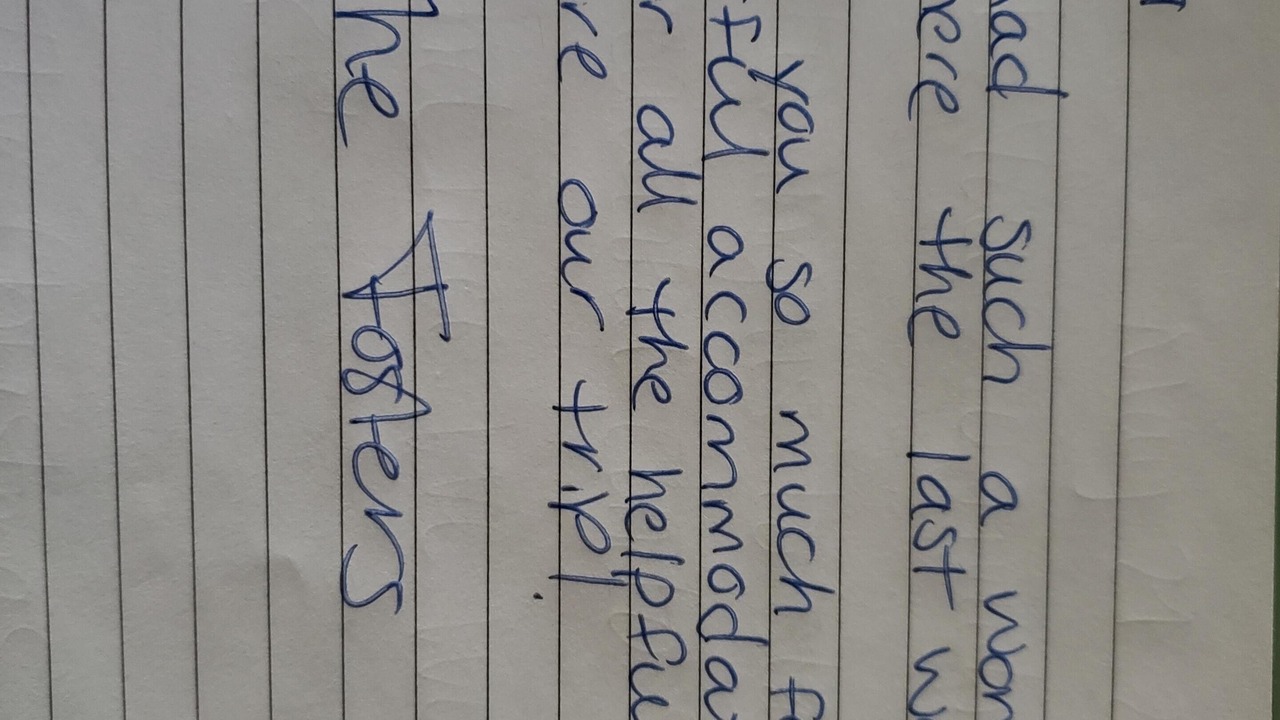 ad such a won
ere the last w
you so much fo
ful accommoda
r all the helpfu
re our trip!
he Fosters